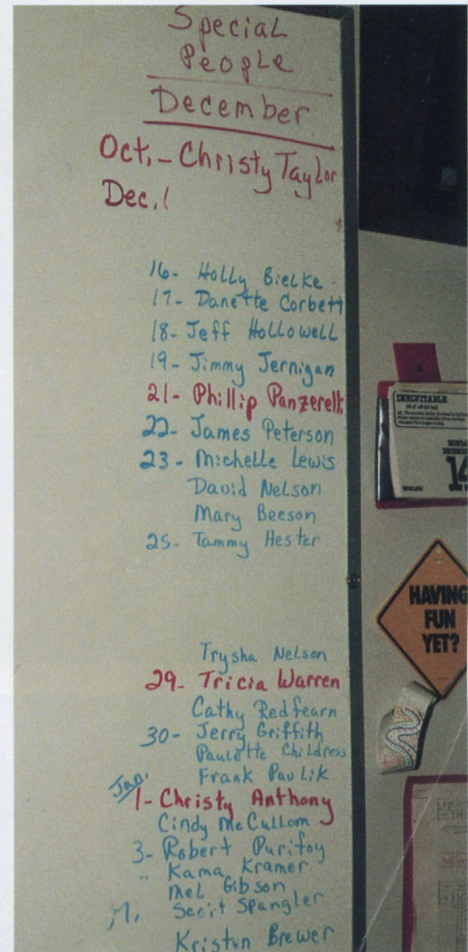 Special
People
December
Oct.- Christy Taylor
Dec.1
16- Holly Bielke
17- Danette Corbett
18- Jeff Hollowell
19- Jimmy Jernigan
21- Phillip Panzerell
22- James Peterson
23- Michelle Lewis
David Nelson
Mary Beeson
25- Tammy Hester
Trysha Nelson
29- Tricia Warren
Cathy Redfearn
30- Jerry Griffith
Paulette Childress
Frank Pavlik
Jan.
1- Christy Anthony
Cindy McCullom
3- Robert Purifoy
" Kama Kramer
Mel Gibson
Scott Spangler
Kristen Brewer
INEVITABLE
14
HAVING
FUN
YET?